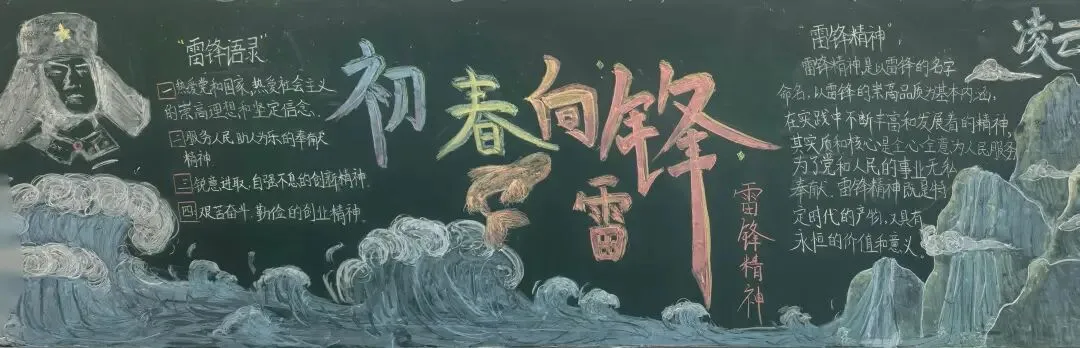 "雷锋语录"
一 热爱党和国家,热爱社会主义
的崇高理想和坚定信念.
二 服务人民,助人为乐的奉献
精神
三 锐意进取,自强不息的创新精神.
四 艰苦奋斗.勤俭的创业精神.
初春向锋
雷
雷锋精神
"雷锋精神",
雷锋精神是以雷锋的名字
命名,以雷锋的崇高品质为基本内涵,
在实践中不断丰富和发展着的精神,
其实质和核心是全心全意为人民服务,
为了党和人民的事业无私
奉献.雷锋精神既是特
定时代的产物,又具有
永恒的价值和意义。
凌云